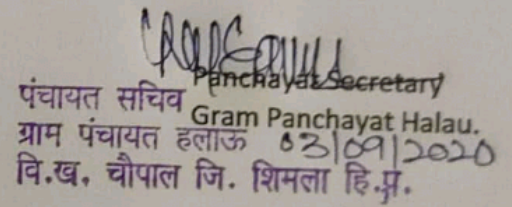 Panchayat Secretary
पंचायत सचिव
Gram Panchayat Halau.
ग्राम पंचायत हलाऊ 03/09/2020
वि.ख. चौपाल जि. शिमला हि.प्र.